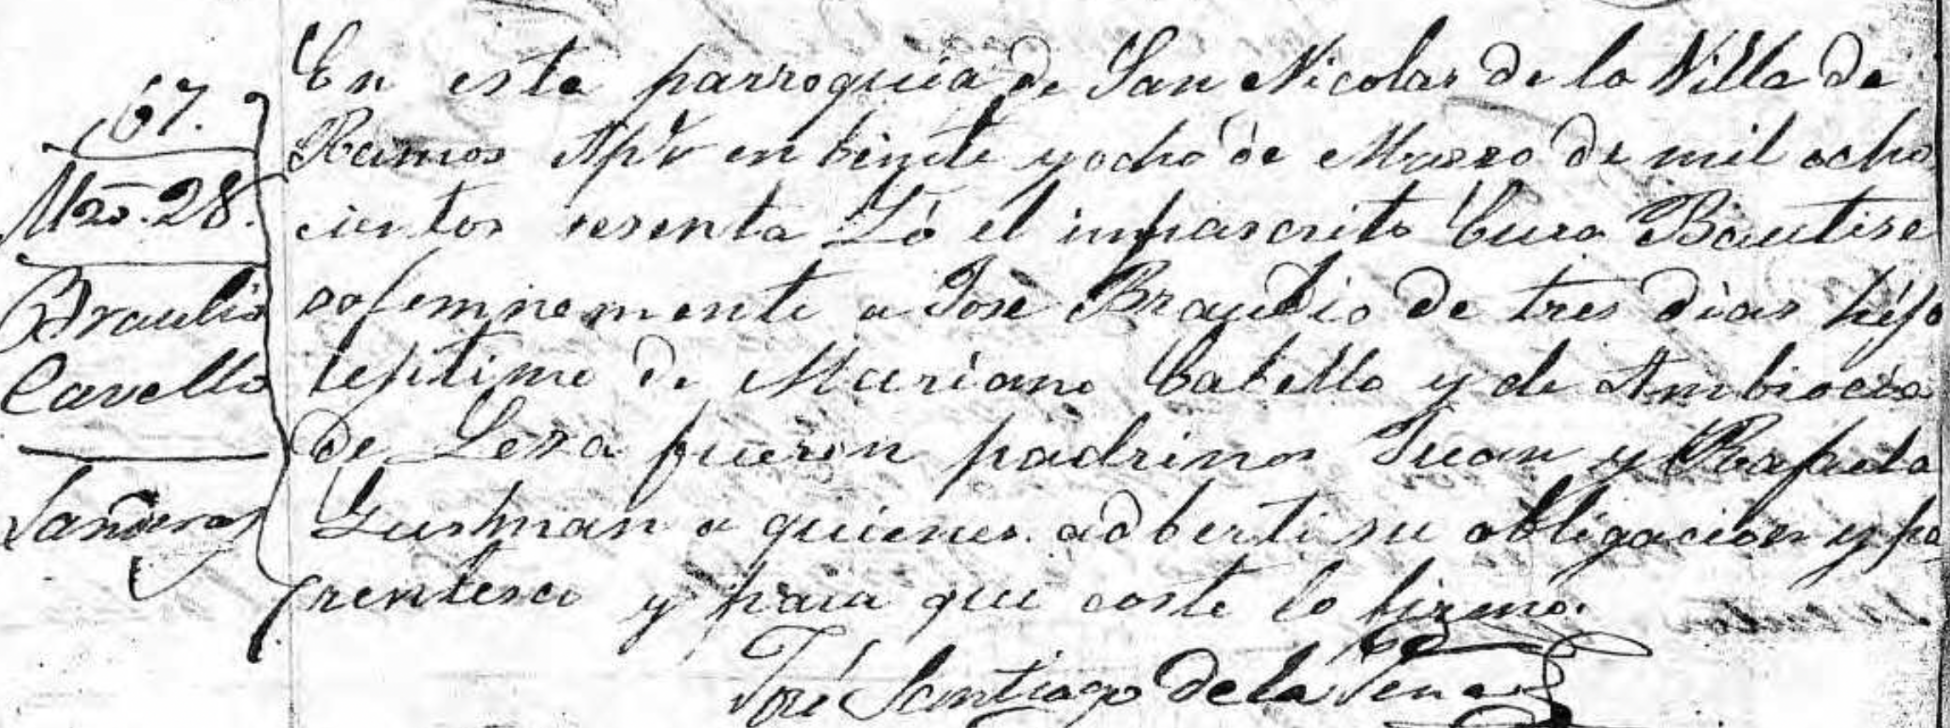 67.
Mzo. 28.
Braulio
Cavello
En esta parroquia de San Nicolas de la Villa de
Ramos en beinte y ocho de Marzo de mil ocho
cientos sesenta Yó el infrascrito Cura Bautise
solemnemente a José Braulio de tres dias hijo
lejitimo de Mariano Cabello y de Ambrocia
de Lexa fueron padrinos Juan y Rafaela
Gusman a quienes adberti su obligacion y pa
rentesco y para que coste lo firmo.
José Santiago de la Pena